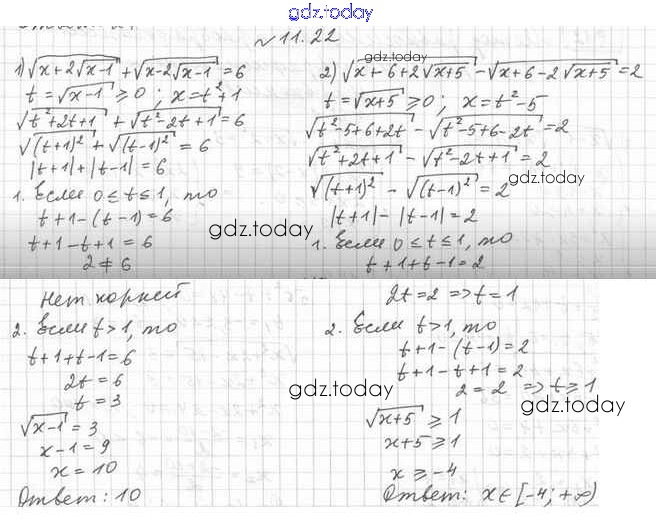 gdz.today
№ 11.22
1) √(x+2√(x-1)) + √(x-2√(x-1)) = 6
t = √(x-1) ≥ 0 ; x = t²+1
√(t²+2t+1) + √(t²-2t+1) = 6
√((t+1)²) + √((t-1)²) = 6
|t+1| + |t-1| = 6
1. Если 0 ≤ t ≤ 1, то
t+1-(t-1) = 6
t+1-t+1 = 6
2 ≠ 6
Нет корней
2. Если t > 1, то
t+1+t-1 = 6
2t = 6
t = 3
√(x-1) = 3
x-1 = 9
x = 10
Ответ: 10
gdz.today
2) √(x+6+2√(x+5)) - √(x+6-2√(x+5)) = 2
t = √(x+5) ≥ 0 ; x = t²-5
√(t²-5+6+2t) - √(t²-5+6-2t) = 2
√(t²+2t+1) - √(t²-2t+1) = 2
gdz.today
√((t+1)²) - √((t-1)²) = 2
|t+1| - |t-1| = 2
gdz.today
1. Если 0 ≤ t ≤ 1, то
t+1+t-1 = 2
2t = 2 => t = 1
2. Если t > 1, то
t+1-(t-1) = 2
t+1-t+1 = 2
2 = 2 => t ≥ 1
gdz.today
gdz.today
√(x+5) ≥ 1
x+5 ≥ 1
x ≥ -4
Ответ: x ∈ [-4; +∞)